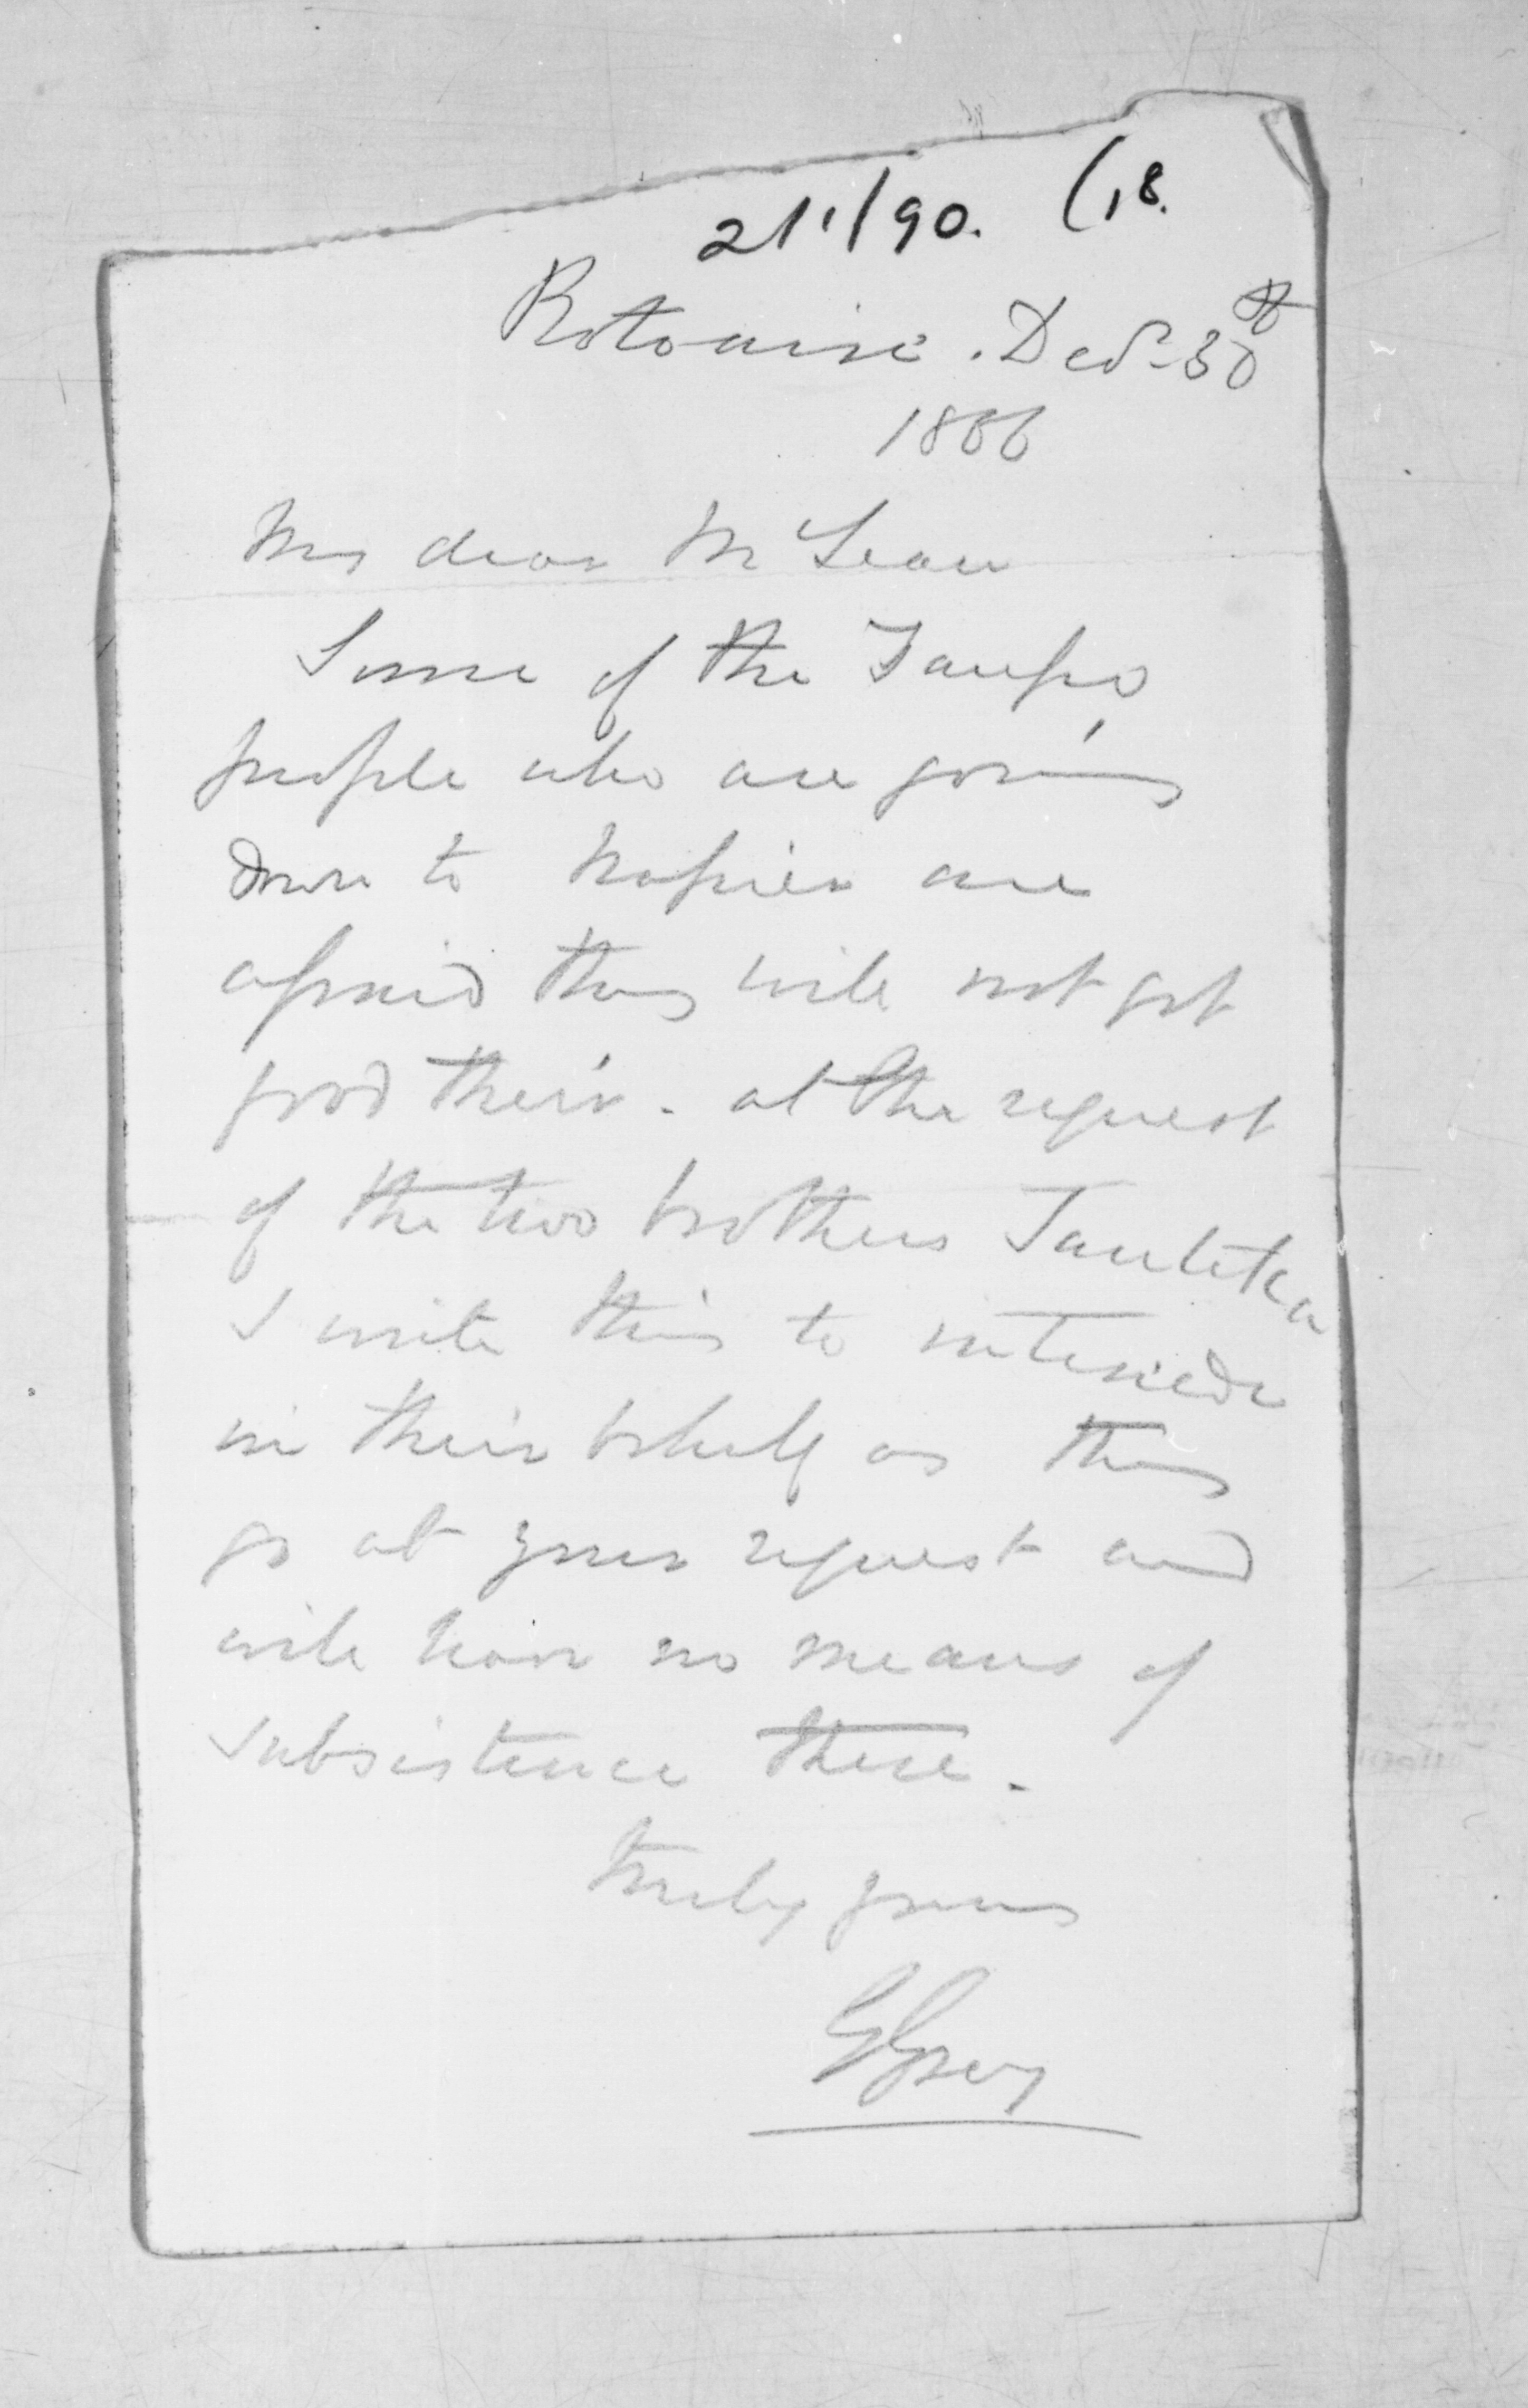 21/1/90. (18.
Rotoaira. Decr. 30th
1866
My dear McLean
Some of the Taupo
people who are going
down to Napier are
afraid they will not get
food there. at the request
of the two brothers
I write this to intercede
in their behalf as they
go at your request and
will have no means of
subsistence there.
truly yours
GGrey